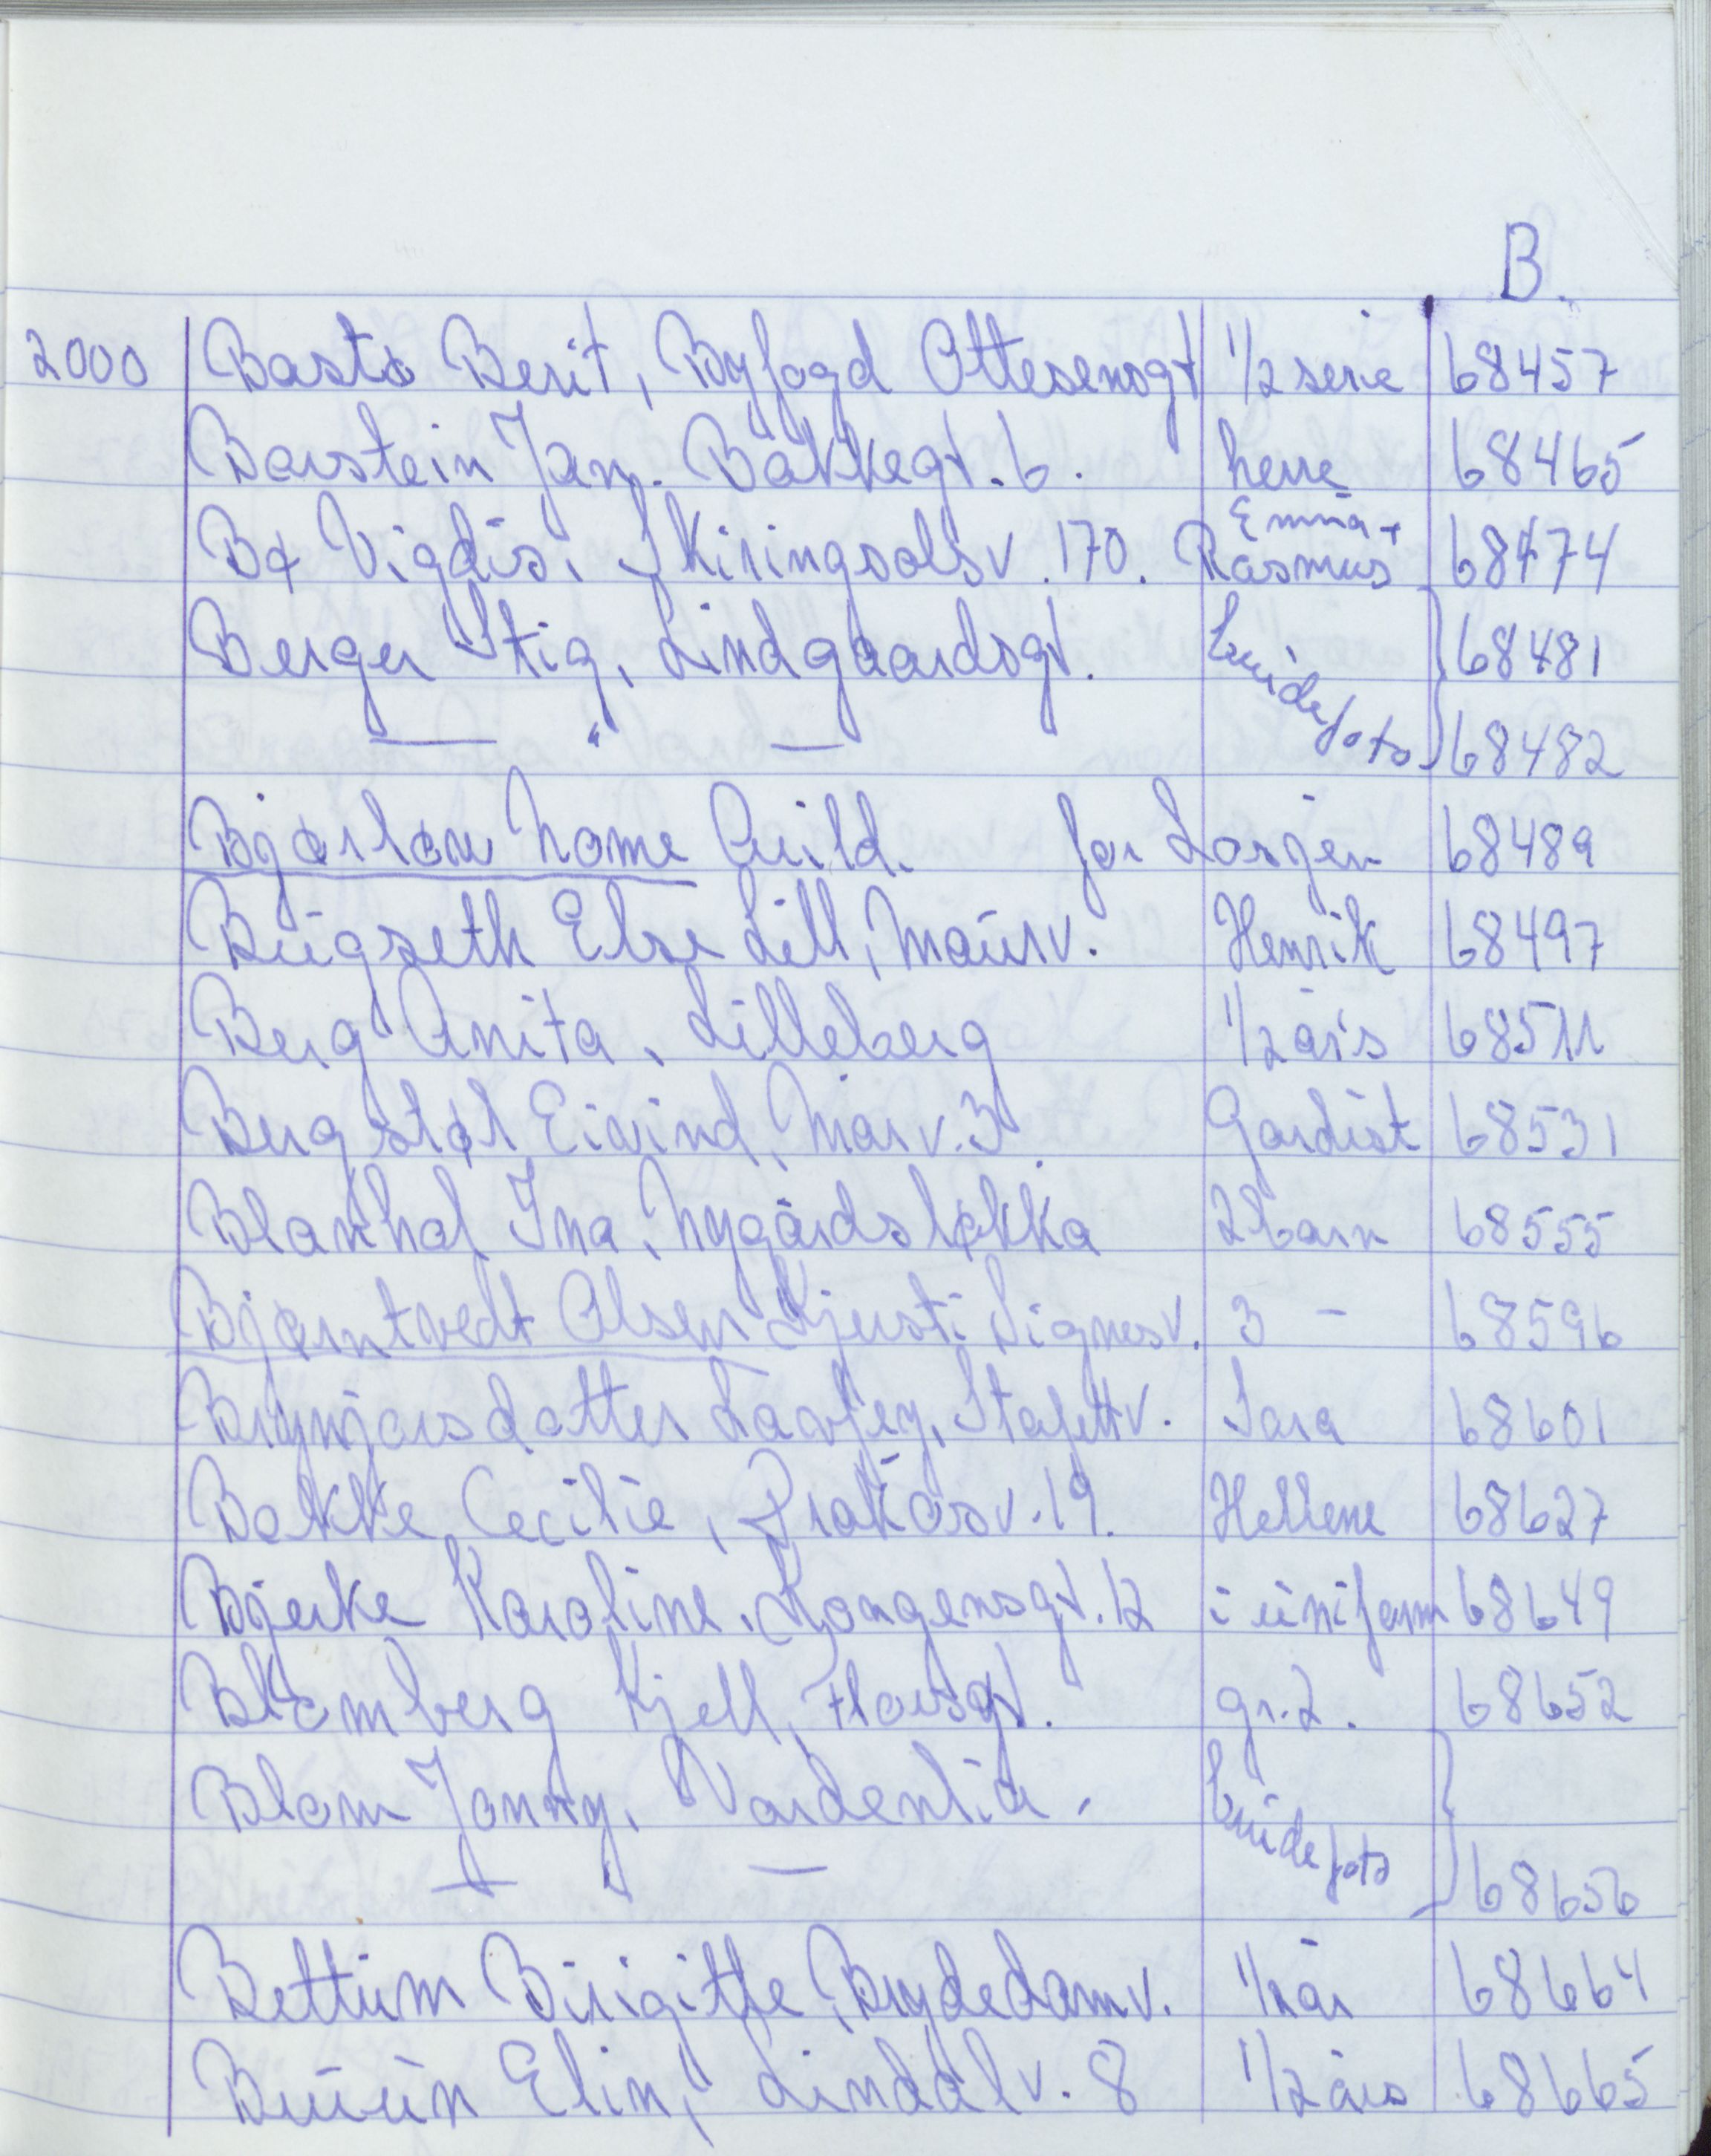 B.
2000 Bastø Berit, Byfogd Ottesensgt 1/2 serie 68457
Barstein Jan. Bakkegt. 6. herre 68465
Bø Vigdis, Skiringsalsv. 170. Emma + Rasmus 68474
Berger Stig, Lindgaardsgt. brudefoto 68481
— " — 68482
Bjørlow Mame Guild. for Losjen 68489
Bugseth Else Lill, Maurv. Henrik 68497
Berg Anita, Lilleberg 1/2 års 68511
Bergstøl Eivind, Mårv. 3. Gardist 68531
Blomhol Ina, Nygårdsløkka 2 barn 68555
Bjørntvedt Olsen Kjersti Signesv. 3 — 68596
Brynjarsdatter Laufey, Stafettv. Sara 68601
Bakke Cecilie, Fruktåsv. 19. Hellene 68627
Bjerke Karoline. Kongensgt. 12 i uniform 68649
Blomberg Kjell, Thorsgt. gr. 2. 68652
Blom Jonny, Vardenlia. brudefoto
— " — 68656
Bettum Birigitte, Brydedamv. 1/2 år 68664
Buuun Elin, Linddalv. 8 1/2 års 68665